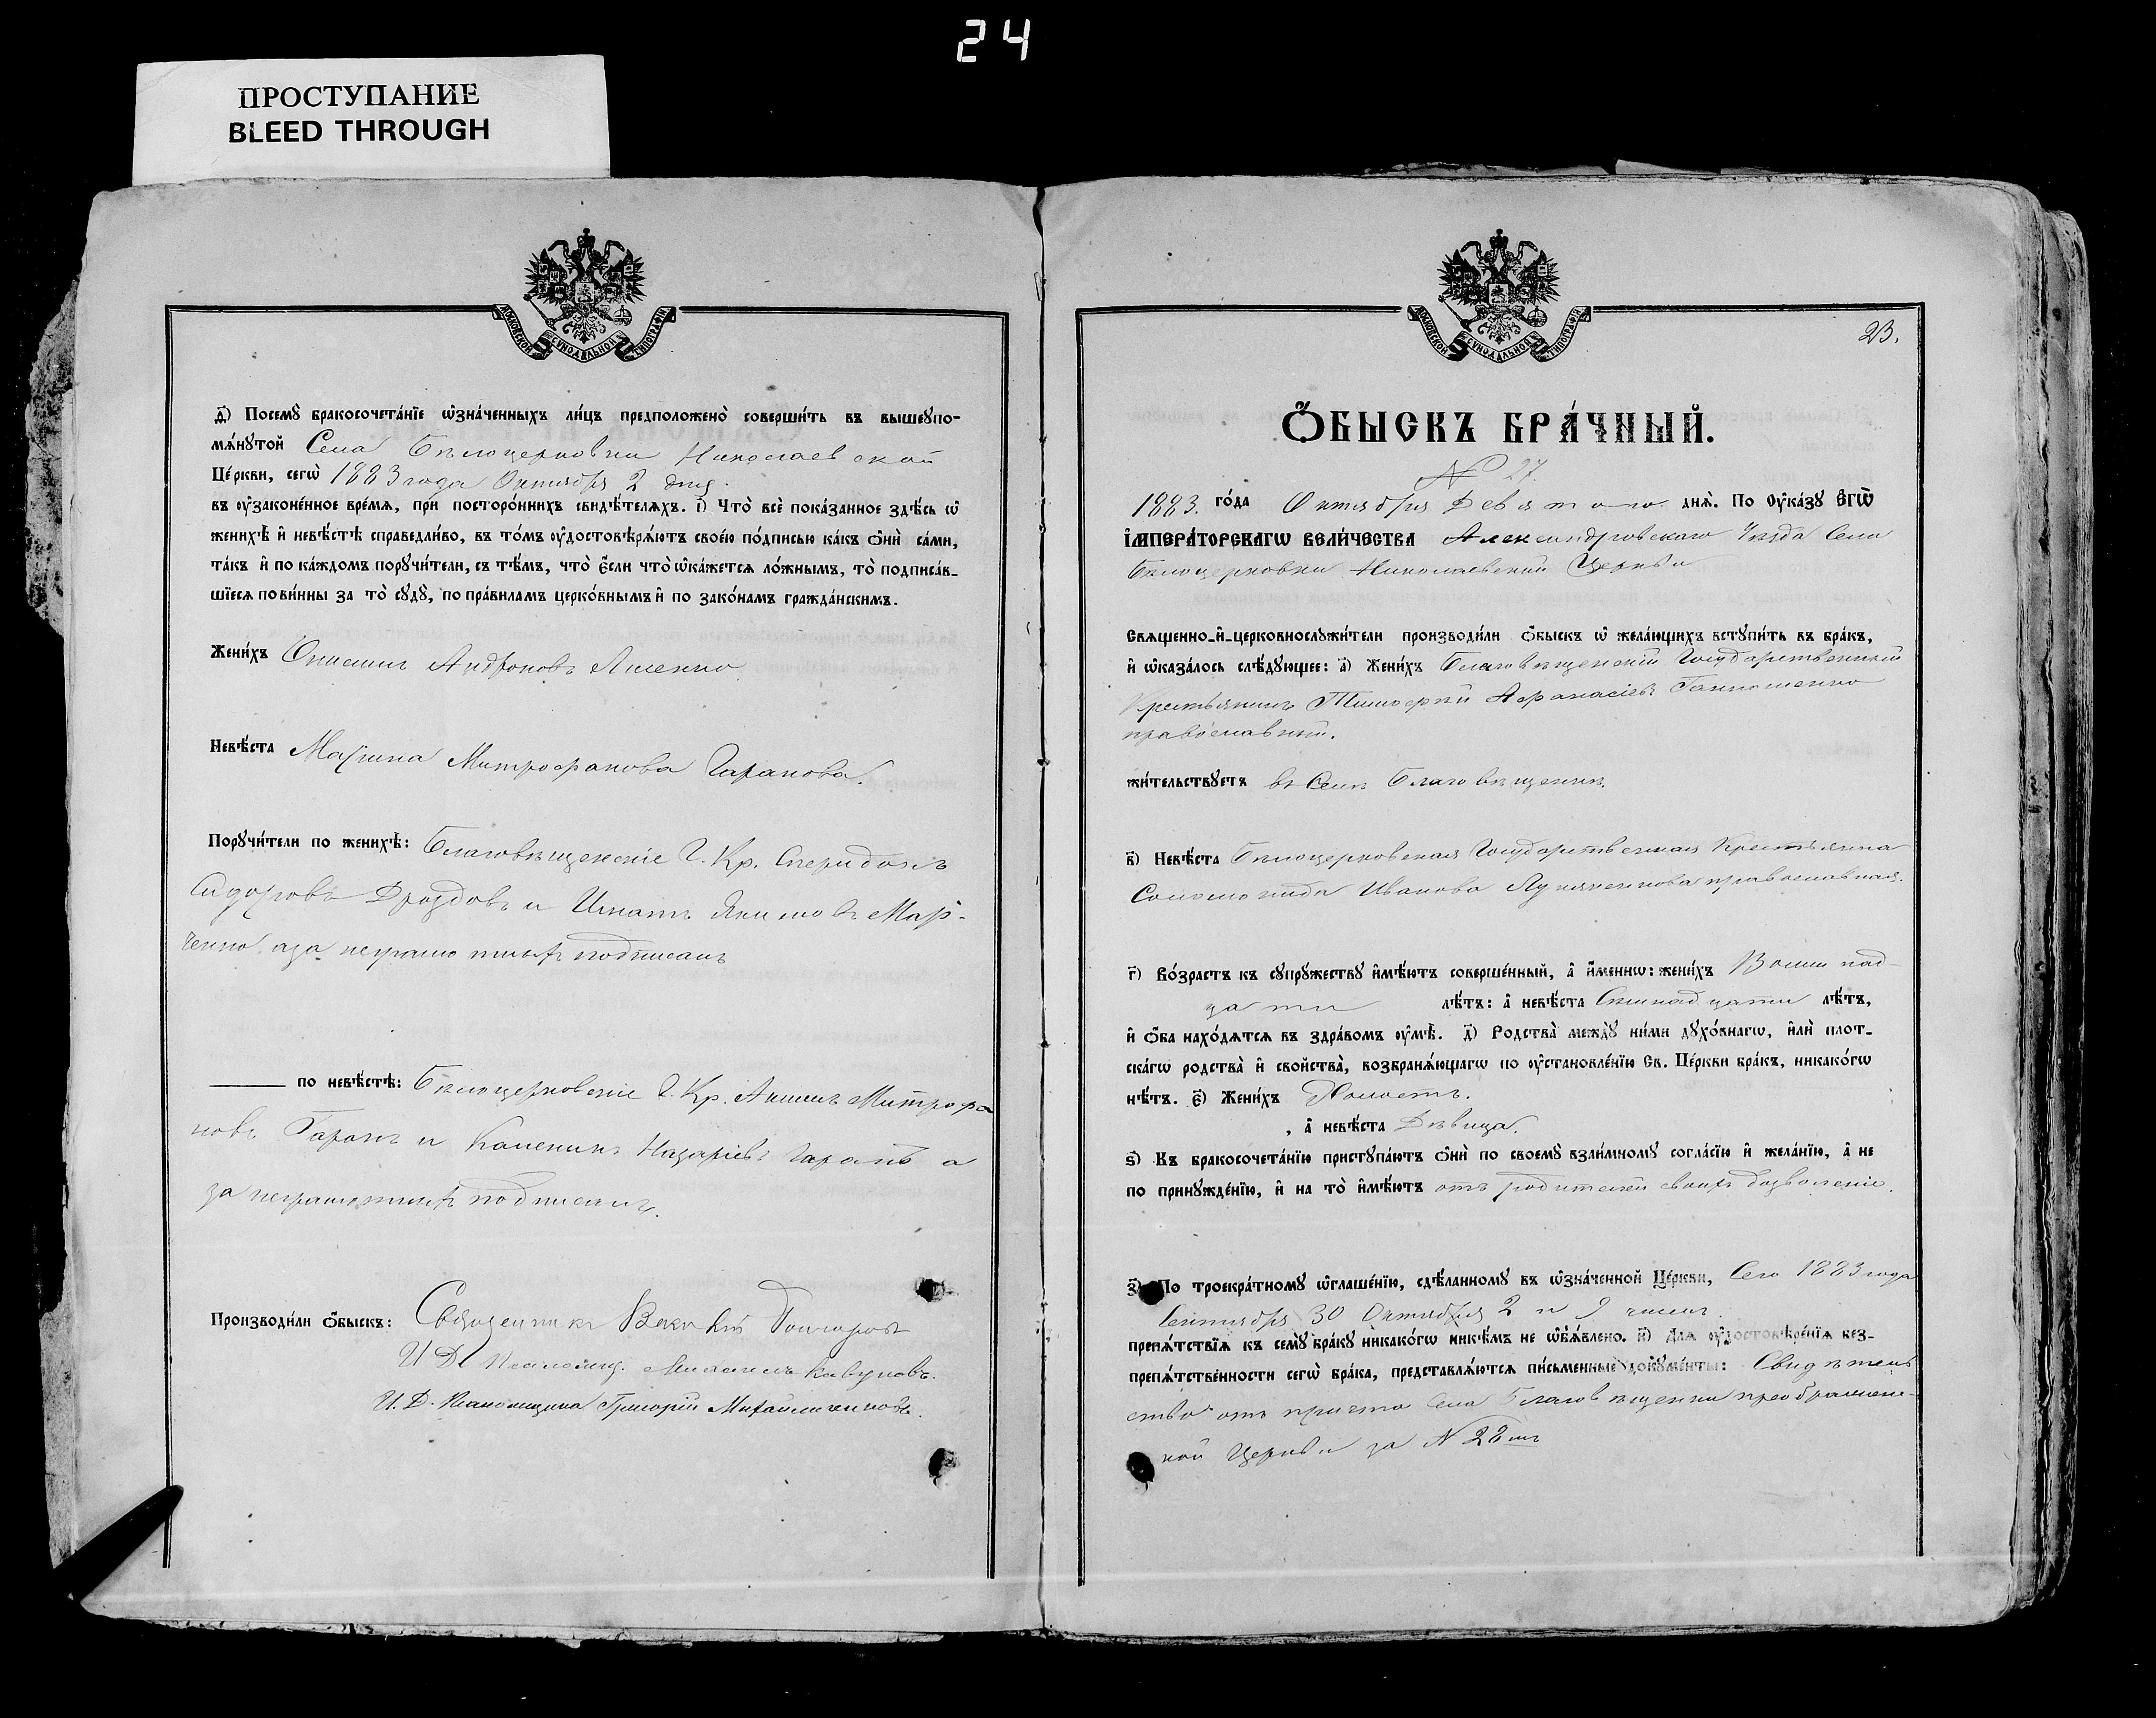 24
ПРОСТУПАНИЕ
BLEED THROUGH
МОСКОВСКОЙ СУНОДАЛЬНОЙ ТИПОГРАФІИ
д҃і) Посемꙋ̀ бракосочета́нїе ѡ҆зна́ченныхъ ли́цъ предположено̀ соверши́ть въ вышеꙋпо-
мѧ́нꙋтой Села Бѣлоцерковки Николаевской
Це́ркви, сегѡ̀ 1883 года Октября 2 дня.
въ оу҆зако́ненное вре́мѧ, при посторо́ннихъ свидѣ́телѧхъ. і҃) Что̀ всѐ пока́занное здѣ́сь ѡ҆
женихѣ̀ и҆ невѣ́стѣ справедли́во, въ то́мъ оу҆достовѣрѧ́ютъ свое́ю по́дписью ка́къ ѻ҆нѝ са́ми,
та́къ и҆ по ка́ждомъ порꙋчи́тели, съ тѣ́мъ, что̀ є҆́сли что̀ ѡ҆ка́жетсѧ ло́жнымъ, то̀ подписа́в-
шїесѧ пови́нны за то̀ сꙋдꙋ̀, по пра́виламъ церко́внымъ и҆ по зако́намъ гражда́нскимъ.
Жени́хъ Онисимъ Андроновъ Ляшенко
Невѣ́ста Марина Митрофанова Гаранова.
Порꙋчи́тели по женихѣ̀: Благовѣщенскіе Г. Кр. Спиридонъ
Сидоровъ Дроздовъ и Игнатъ Якимовъ Мар-
ченко а за неграмотныхъ подписалъ
по невѣ́стѣ: Бѣлоцерковскіе Г. Кр. Акимъ Митрофа
новъ Гаранъ и Каленикъ Назаріевъ Гаранъ а
за неграмотныхъ подписалъ.
Производи́ли ѻ҆́быскъ: Священникъ Гончаровъ
И. Д. Псаломщ. Михаилъ Кавуновъ.
И. Д. Псаломщика Григорій Михайличенковъ.
МОСКОВСКОЙ СУНОДАЛЬНОЙ ТИПОГРАФІИ
23.
Ѻ҆́БЫСКЪ БРА́ЧНЫЙ.
№ 27.
1883. го́да Октября Девятого днѧ̀. По оу҆ка́зꙋ є҆гѡ̀
і҆мпера́торскагѡ вели́чества Александровскаго Уезда Села
Бѣлоцерковки Николаевской Церкви
Свѧще́нно-и҆-церковнослꙋжи́тели производи́ли ѻ҆́быскъ ѡ҆ жела́ющихъ встꙋпи́ть въ бра́къ,
и҆ ѡ҆каза́лось слѣ́дꙋющее: а҃) Жени́хъ Благовѣщенскій Государственный
Крестьянинъ Тимофей Афанасіевъ
православный.
жи́тельствꙋетъ въ Селѣ Благовѣщенкѣ.
в҃) Невѣ́ста Бѣлоцерковская Государственная Крестьянка
Соломонида Иванова Лукяненкова православная.
г҃) Во́зрастъ къ сꙋпрꙋ́жествꙋ и҆мѣ́ютъ соверше́нный, а҆ и҆́меннѡ: жени́хъ Восемнад-
цати лѣ́тъ: а҆ невѣ́ста Семнадцати лѣ́тъ,
и҆ ѻ҆́ба нахо́дѧтсѧ въ здра́вомъ оу҆мѣ̀. д҃) Родства̀ междꙋ̀ ни́ми дꙋхо́внагѡ, и҆лѝ плот-
ска́гѡ родства̀ и҆ сво́йства̀, возбранѧ́ющагѡ по оу҆становле́нїю Св. Це́ркви бра́къ, никако́гѡ
нѣ́тъ. є҃) Жени́хъ Холостъ.
, а҆ невѣ́ста Дѣвица.
ѕ҃) Къ бракосочета́нїю пристꙋпа́ютъ ѻ҆нѝ по своемꙋ̀ взаи́мномꙋ согла́сїю и҆ жела́нїю, а҆ не
по принꙋжде́нїю, и҆ на то̀ и҆мѣ́ютъ отъ родителей своихъ дозволеніе.
з҃) По троекра́тномꙋ ѡ҆глаше́нїю, сдѣ́ланномꙋ въ ѡ҆зна́ченной Це́ркви, Сего 1883 года
Сентября 30 Октября 2 и 9 чиселъ.
препѧ́тствїѧ къ семꙋ̀ бра́кꙋ никако́гѡ никѣ́мъ не ѡ҆б̾ѧ́влено. и҃) Длѧ оу҆достовѣре́нїѧ без-
препѧ́тственности сегѡ̀ бра́ка, представлѧ́ютсѧ пи́сьменные докꙋме́нты: Свидѣтель
ство отъ причта Села Благовѣщенки преображенс-
кой Церкви за № 28мъ